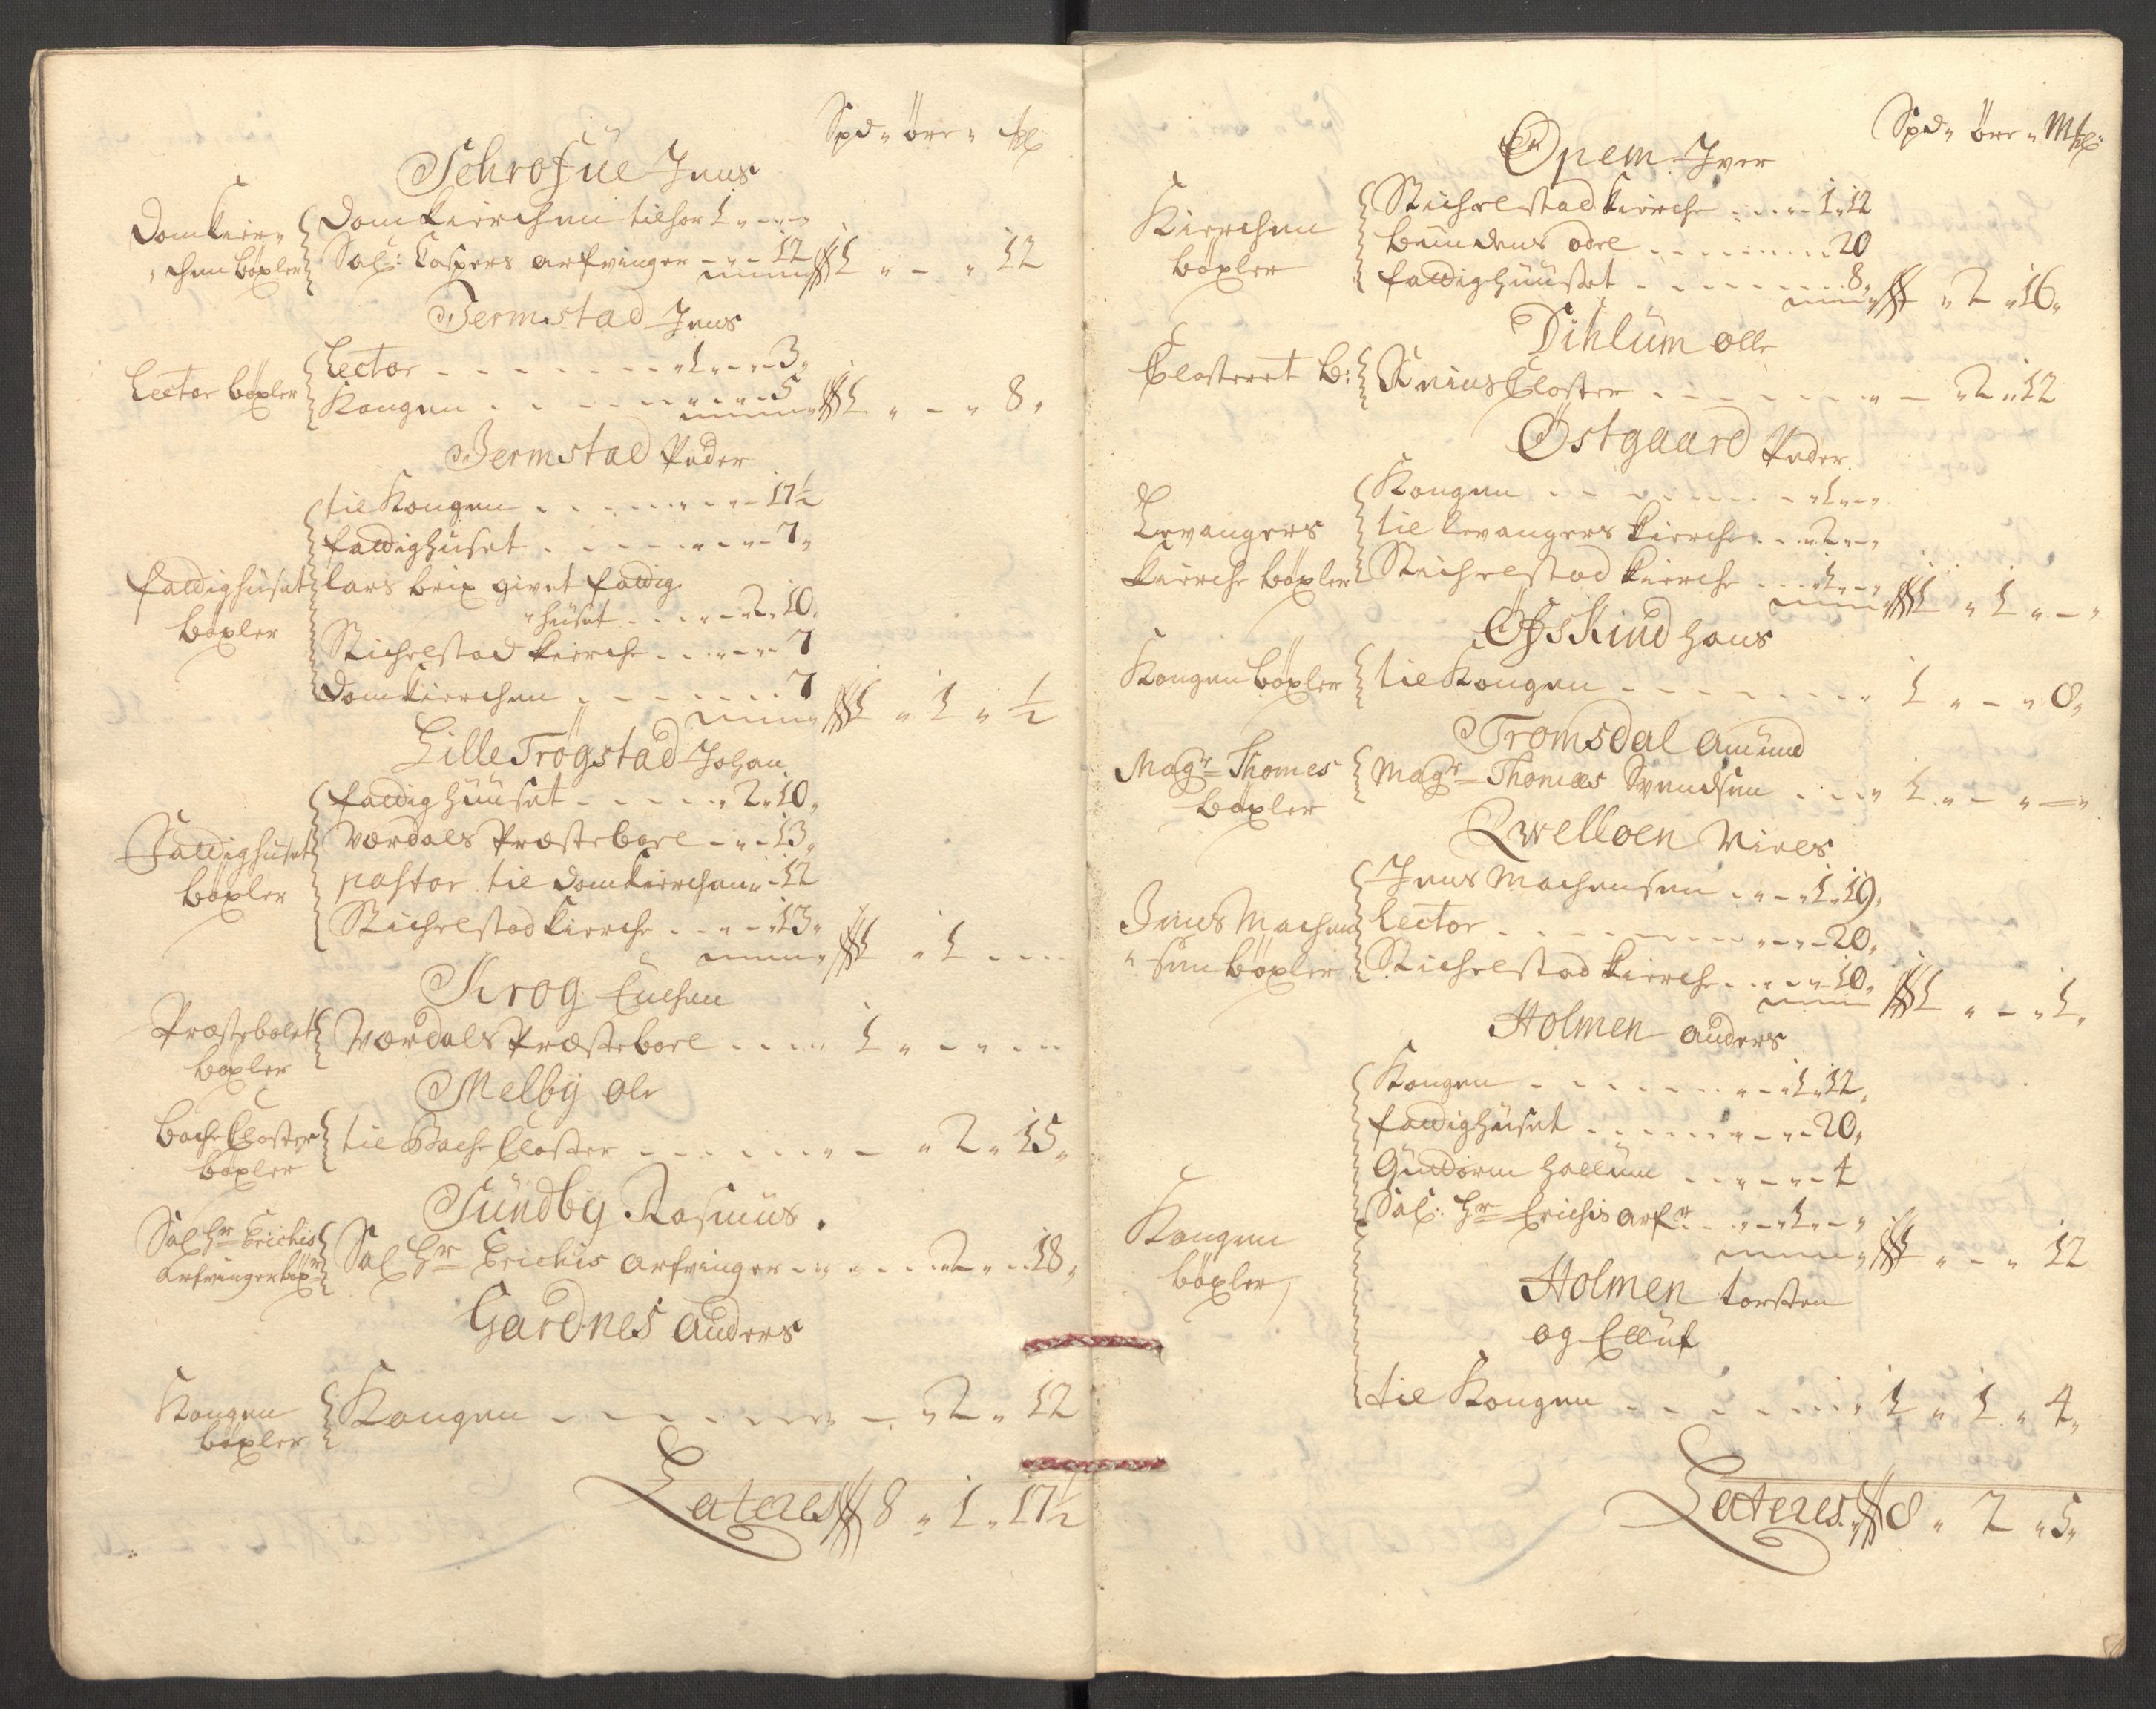 Spd„ öre„ Mkl
Schrofüe Jens
Domkier„
„chen böxler
Domkierchen tilhör 1 „ - „
Sal: Caspers arfvinger - „ - 12 1 „ - „ 12
Jermstad Jens
Lector böxler
Lector - - - - - 1 - - - 3„
Kongen - - - - - - 5 1 „ - „ 8„
Jermstad Peder
til Kongen - - - - - 17½
fattighuset - - - - - 7„
fattighuset
böxler
lars brix givet fattig
„huset - - - 2„ 10„
Stichelstad kierche - - - - 7
Domkierchen - - - - - 7 1 „ 1 „ ½
Lille Trögstad Johan
fattighuuset - - - - „ 2„ 10„
Fattighuset
böxler
Værdals Præsteboel - „ - 13„
pastor til domkierchen „ - 12
Stichelstad kierche - - „ - 13„
1 „ 1 - - -
Krog Enchen
Præstebolet
böxler
Værdals Præsteboel - - - - 1 „ - „ - -
Melby ole
Bache Closter
böxler
til Bache Closter - - - - - „ 2„ 15„
Sundby Rasmus.
Sal Hr Erichis
Arfvinger böxr
Sal Hr Erichis arfvinger - - - 2„ - 18„
Gardnes anders
Kongen
böxler
Kongen - - - - - „ 2„ 12
Lateres 8 „ 1 „ 17½
Spd„ öre„ Mkl:
Opem Jver
Kierchen
böxler
Stichelstad kierche - - - 1„ 12
bundens odel - - - - - 20
fattighuuset - - - - - 8„ „ 2 „ 16„
Dihlum olle
Closteret B:
Reins Closter - - - - „ - „ 2 „ 12
Östgaard Peder.
Levangers
kierche böxler
Kongen - - - - - 1 - „
til levangers kierche - - 2 - „
Stichelstad kierche - - - 1 - „ 1 „ 1 „ - „
Öfskind hans
Kongen böxler
til Kongen - - - - - 1 „ - „ 0„
Tromsdal amund
Magr Thomes
böxler
Magr Thomæs Svendsen - - - „ 1 „ - „ - „
Qwelloen Niels
Jens Machen
„sen böxler
Jens Machensen - - - 1„ 19„
Lector - - - - - - 20„
Stichelstad kierche - - - 10„ 1 „ - „ 1„
Holmen anders
Kongen
böxler
Kongen - - - - - 1„ 12„
fattighuset - - - - - 20„
Gundorm hallum - - - - 4
Sal: Hr Erichis arfr - - 1 - „
1 „ - „ 12
Holmen torsten
og Elluf
til Kongen - - - - - 1 „ 1 „ 4„
Lateres. 8 „ 2 „ 5„